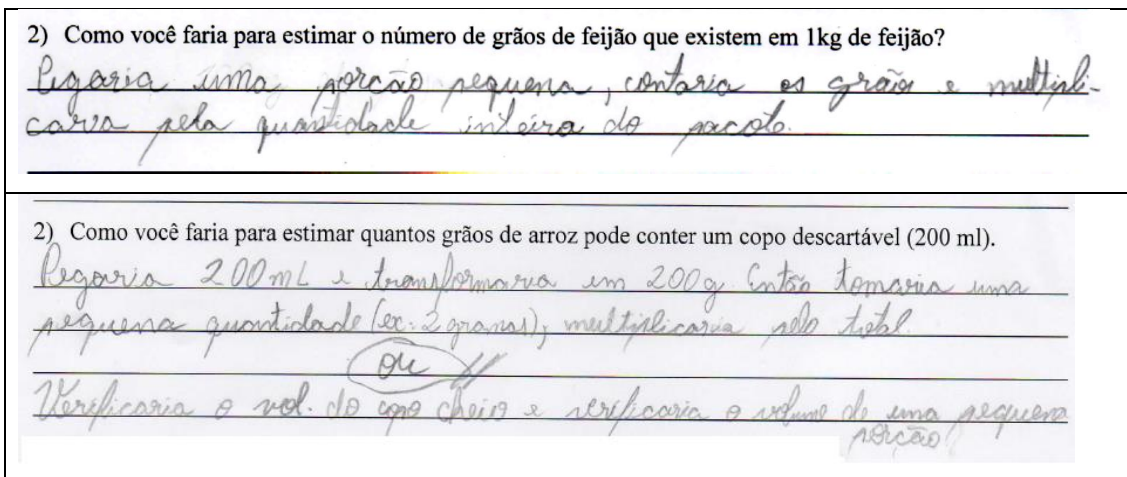 2) Como você faria para estimar o número de grãos de feijão que existem em 1kg de feijão?
Pegaria uma porção pequena, contaria os grãos e multipli-
caria pela quantidade inteira do pacote.
2) Como você faria para estimar quantos grãos de arroz pode conter um copo descartável (200 ml).
Pegaria 200mL e transformaria em 200g. Então tomaria uma
pequena quantidade (ex: 2 gramas), multiplicaria pelo total.
ou
Verificaria o vol. do copo cheio e verificaria o volume de uma pequena
porção